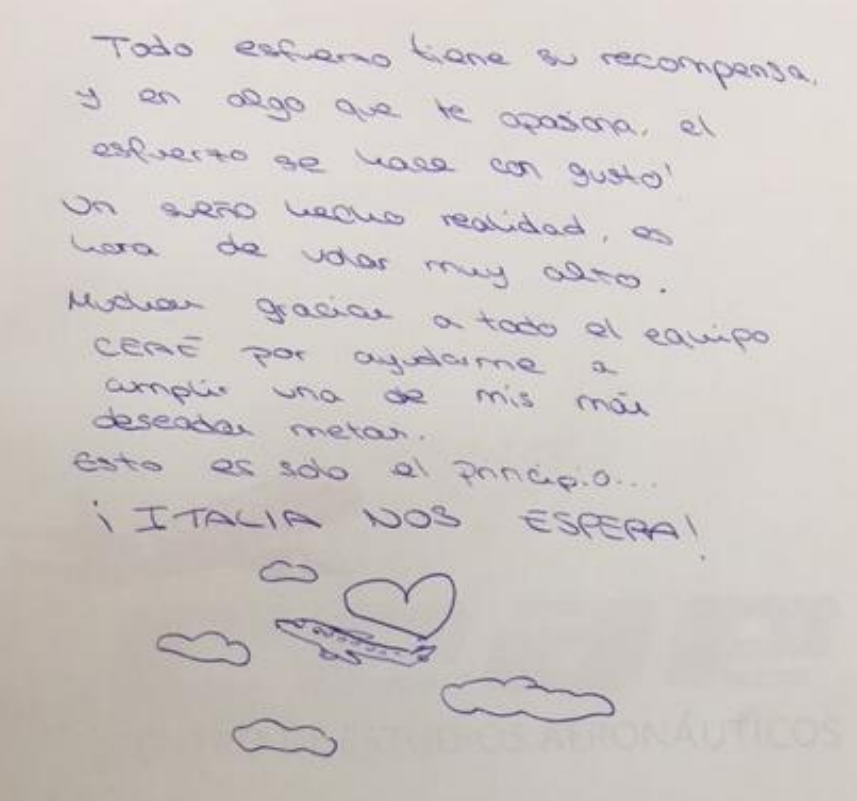 Todo esfuerzo tiene su recompensa,
y en algo que te apasiona, el
esfuerzo se hace con gusto!
Un sueño hecho realidad, es
hora de volar muy alto.
Muchas gracias a todo el equipo
CEAE por ayudarme a
cumplir una de mis más
deseadas metas.
Esto es solo el principio...
¡ITALIA NOS ESPERA!
ESTUDIOS AERONÁUTICOS